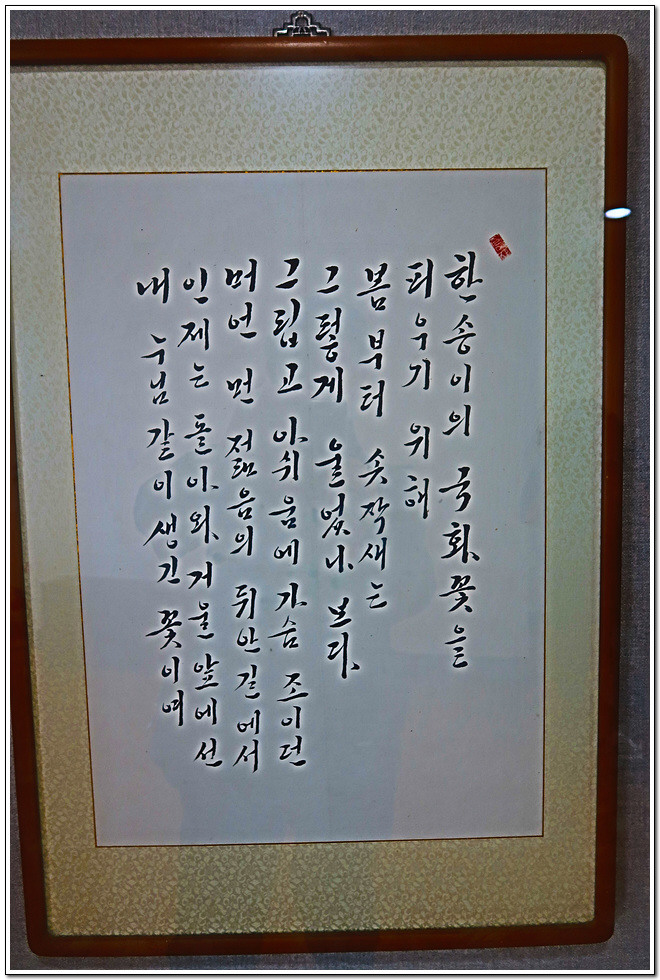 한 송이의 국화꽃을
피우기 위해
봄부터 솟작새는
그렇게 울었나 보다
그립고 아쉬움에 가슴 조이던
머언 먼 젊음의 뒤안길에서
인제는 돌아와 거울 앞에 선
내 누님같이 생긴 꽃이여